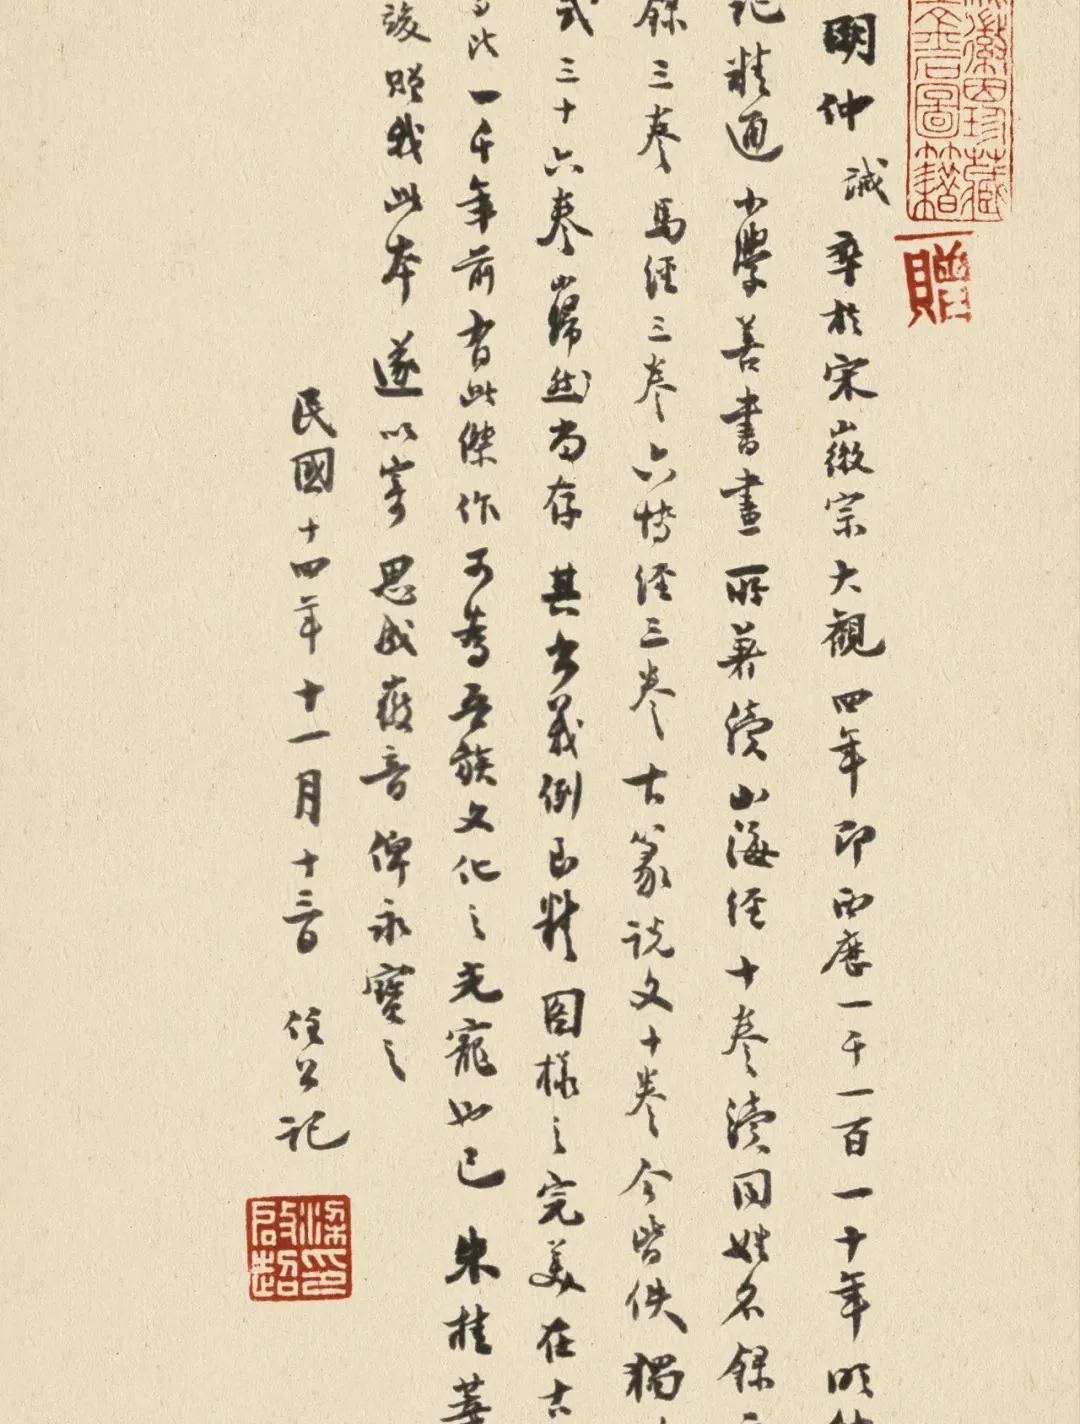 徽因珍藏
金石圖籍
贈
明仲誡卒於宋徽宗大觀四年即西曆一千一百一十年明仲
記精通小學善書畫所著續山海經十卷續同姓名錄二
錄三卷馬經三卷六博經三卷古篆說文十卷今皆佚獨
式三十六卷巋然尚存其書義例至精图樣之完美在古
比一千年前有此傑作可為吾族文化之光寵也已朱桂莘
竣贈我此本遂以寄思成徽音俾永寶之
民國十四年十一月十三日 任公記
梁印
啟超